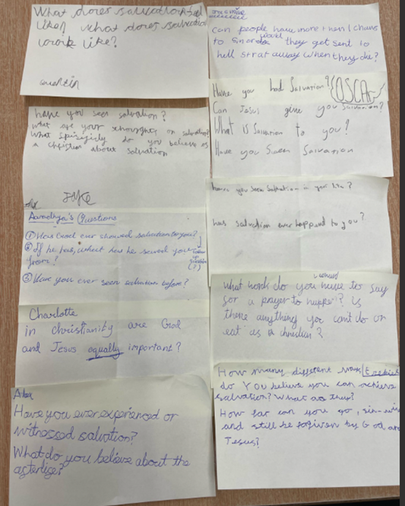 What does salvation feel
like? what does salvation
look like?
quentin
have you seen salvation?
what are your thoughts on salvation?
What do you believe as
a christian about salvation
Jake
Questions
① How has God ever showed salvation to you?
② If he has, what has he saved you
from?
③ Have you ever seen salvation before?
Charlotte
in christianity are God
and Jesus equally important?
Have you ever experienced or
witnessed salvation?
What do you believe about the
afterlife?
can people have more than 1 chance
to or do they get sent to
hell strat away when they die?
Have you had Salvation?
OSCAR
Can Jesus give you salvation?
What is Salvation to you?
Have you Seen Salvation
Have you seen salvation in your life?
has salvation ever happed to you?
What words do you have to say
for a prayer to happen? Is
there anything you can't do or
eat as a christian?
How many different ways
do YOU believe you can achieve
salvation? What are they?
How far can you go, sin-wise
and still be forgiven by God, and
Jesus?